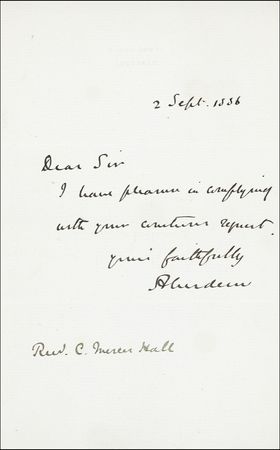 2 Sept. 1886
Dear Sir
I have pleasure in complying
with your courteous request.
yours faithfully
Aberdeen
Revd. C. Mercer Hall